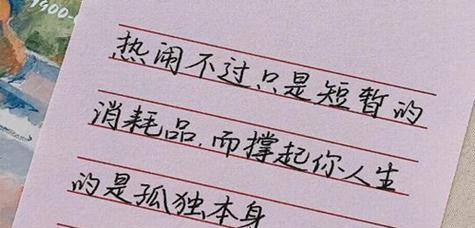 1900-
热闹不过只是短暂的
消耗品，而撑起你人生
的是孤独本身